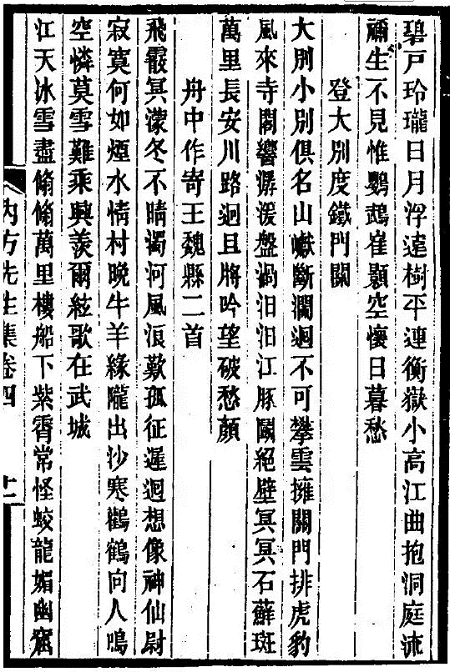 碧戸玲瓏日月浮遠樹平連衡嶽小高江曲抱洞庭流
禰生不見惟鸚鵡崔顥空懷日暮愁
登大別度鐵門關
大別小別俱名山巘斷澗迴不可攀雲擁關門排虎豹
風來寺閣響潺湲盤渦汨汨江豚鬭絕壁冥冥石蘚斑
萬里長安川路迥且將吟望破愁顏
舟中作寄王魏縣二首
飛霰冥濛冬不晴濁河風浪歎孤征遲迴想像神仙尉
寂寞何如煙水情村晚牛羊緣隴出沙寒鸛鶴向人鳴
空憐莫雪難乘興羨爾絃歌在武城
江天冰雪盡翛翛萬里樓船下紫霄常怪蛟龍媚幽窟
內方先生集卷四 十二